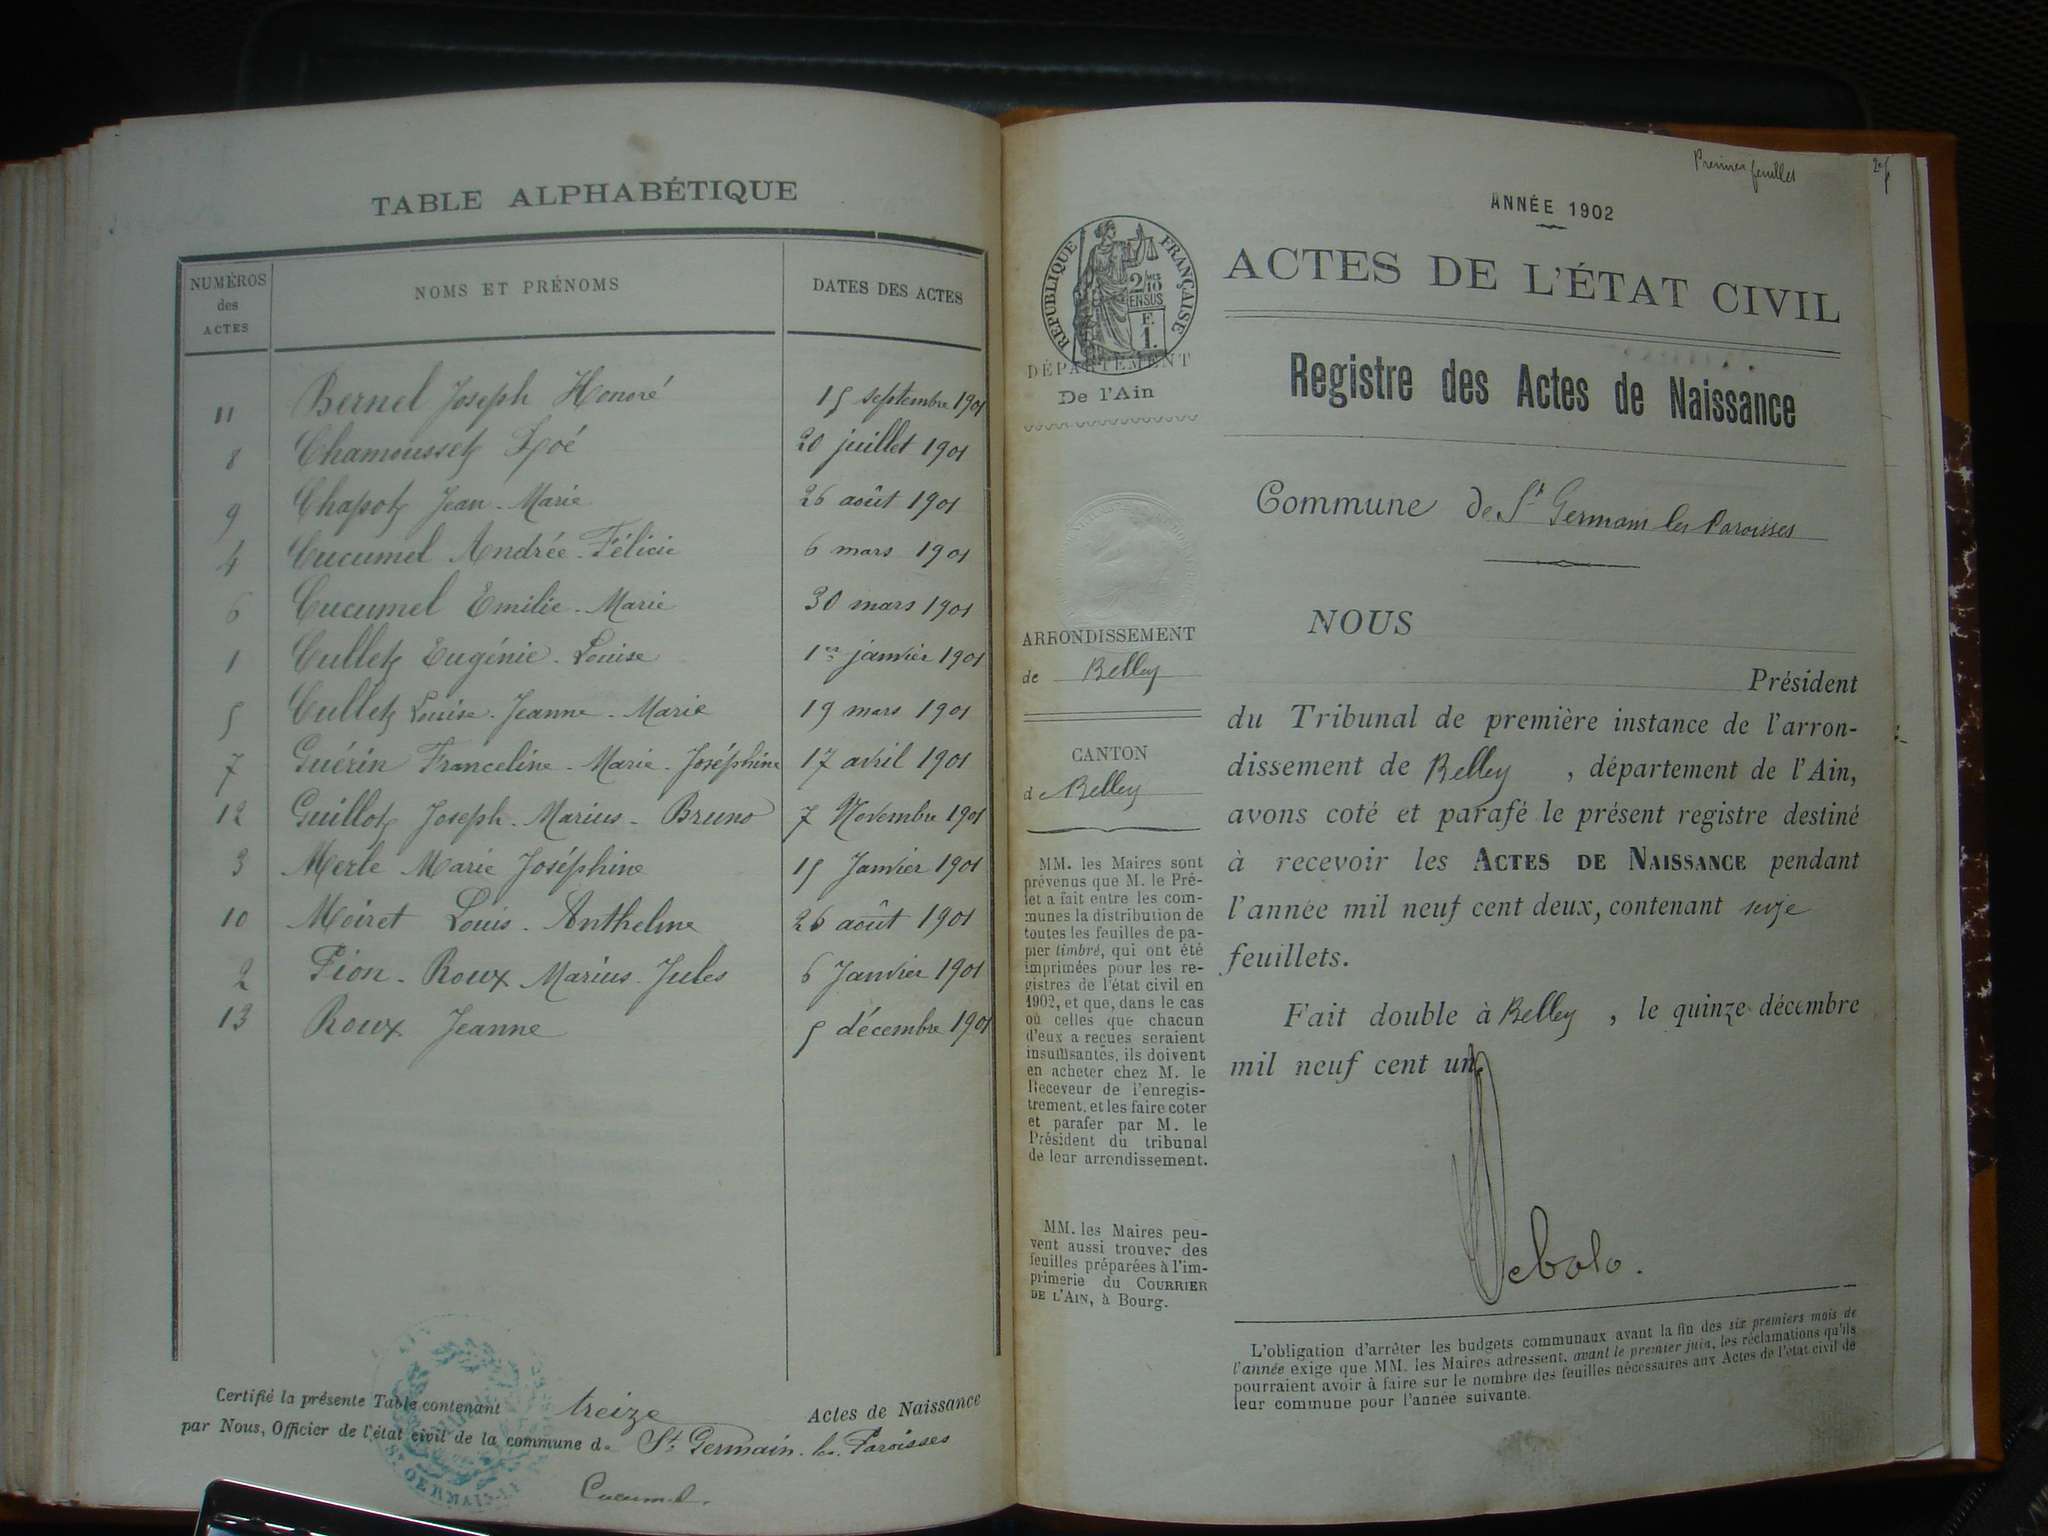 TABLE ALPHABÉTIQUE
NUMÉROS des ACTES
NOMS ET PRÉNOMS
DATES DES ACTES
11 Bernel Joseph Honoré 15 septembre 1901
8 Chamousset Zoé 20 juillet 1901
9 Chapot Jean-Marie 26 août 1901
4 Cucumel Andrée-Félicie 6 mars 1901
6 Cucumel Emilie-Marie 30 mars 1901
1 Cullet Eugénie-Louise 1er janvier 1901
5 Cullet Louise-Jeanne-Marie 19 mars 1901
7 Guérin Franceline-Marie-Joséphine 17 avril 1901
12 Guillot Joseph-Marius-Bruno 7 Novembre 1901
3 Merle Marie Joséphine 15 Janvier 1901
10 Moiret Louis-Anthelme 26 août 1901
2 Pion-Roux Marius-Jules 6 Janvier 1901
13 Roux Jeanne 5 décembre 1901
Certifié la présente Table contenant treize Actes de Naissance
par Nous, Officier de l'état civil de la commune de St Germain-les-Paroisses
Cucumel.
Premier feuillet
ANNÉE 1902
RÉPUBLIQUE FRANÇAISE
2/10
EN SUS
F.
1.
DÉPARTEMENT
De l'Ain
ARRONDISSEMENT
de Belley
CANTON
de Belley
MM. les Maires sont
prévenus que M. le Pré-
fet a fait entre les com-
munes la distribution de
toutes les feuilles de pa-
pier timbré, qui ont été
imprimées pour les re-
gistres de l'état civil en
1902, et que, dans le cas
où celles que chacun
d'eux a reçues seraient
insuffisantes, ils doivent
en acheter chez M. le
Receveur de l'enregis-
trement, et les faire coter
et parafer par M. le
Président du tribunal
de leur arrondissement.
MM. les Maires peu-
vent aussi trouver des
feuilles préparées à l'im-
primerie du COURRIER
DE L'AIN, à Bourg.
ACTES DE L'ÉTAT CIVIL
Registre des Actes de Naissance
Commune de St Germain les Paroisses
NOUS
Président
du Tribunal de première instance de l'arron-
dissement de Belley, département de l'Ain,
avons coté et parafé le présent registre destiné
à recevoir les ACTES DE NAISSANCE pendant
l'année mil neuf cent deux, contenant seize
feuillets.
Fait double à Belley, le quinze décembre
mil neuf cent un.
L'obligation d'arrêter les budgets communaux avant la fin des six premiers mois de
l'année exige que MM. les Maires adressent, avant le premier juin, les réclamations qu'ils
pourraient avoir à faire sur le nombre des feuilles nécessaires aux Actes de l'état civil de
leur commune pour l'année suivante.